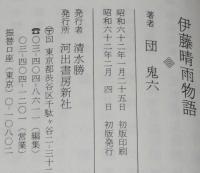 伊藤晴雨物語
著者 団 鬼六
昭和六十二年一月二十五日 初版印刷
昭和六十二年二月 四 日 初版発行
発行者 清水勝
発行所 河出書房新社
東京都渋谷区千駄ヶ谷二-三十二-二
☎〇三-四〇四-八六一一（編集）
〇三-四〇四-一二〇一（営業）
振替口座（東京）〇-一〇八〇二